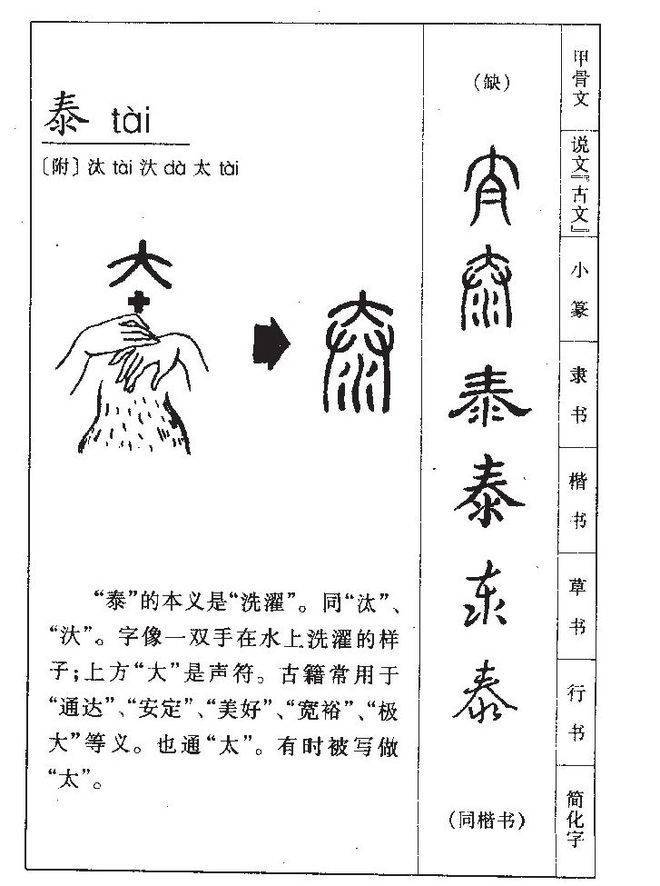 泰 tài
〔附〕汰 tài 汏 dà 太 tài
“泰”的本义是“洗濯”。同“汰”、
“汏”。字像一双手在水上洗濯的样
子；上方“大”是声符。古籍常用于
“通达”、“安定”、“美好”、“宽裕”、“极
大”等义。也通“太”。有时被写做
“太”。
（缺）
泰
泰
泰
泰
（同楷书）
甲骨文
说文『古文』
小篆
隶书
楷书
草书
行书
简化字